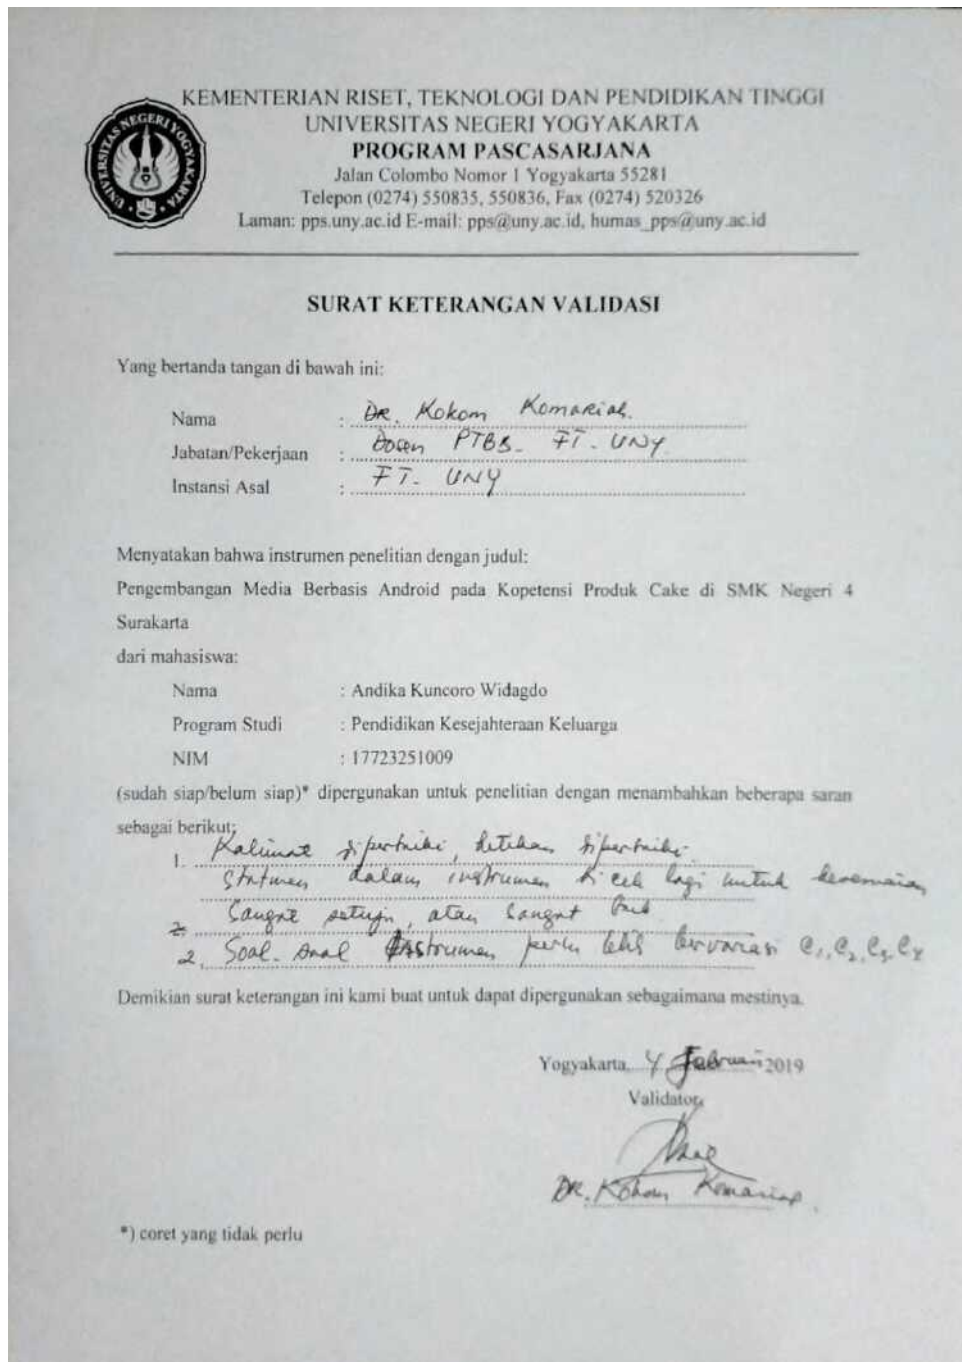 KEMENTERIAN RISET, TEKNOLOGI DAN PENDIDIKAN TINGGI
UNIVERSITAS NEGERI YOGYAKARTA
PROGRAM PASCASARJANA
Jalan Colombo Nomor 1 Yogyakarta 55281
Telepon (0274) 550835, 550836, Fax (0274) 520326
Laman: pps.uny.ac.id E-mail: pps@uny.ac.id, humas_pps@uny.ac.id
UNIVERSITAS NEGERI YOGYAKARTA
SURAT KETERANGAN VALIDASI
Yang bertanda tangan di bawah ini:
Nama : DR. Kokom Komariah.
Jabatan/Pekerjaan : Dosen PTBB - FT. UNY
Instansi Asal : FT. UNY
Menyatakan bahwa instrumen penelitian dengan judul:
Pengembangan Media Berbasis Android pada Kopetensi Produk Cake di SMK Negeri 4
Surakarta
dari mahasiswa:
Nama : Andika Kuncoro Widagdo
Program Studi : Pendidikan Kesejahteraan Keluarga
NIM : 17723251009
(sudah siap/belum siap)* dipergunakan untuk penelitian dengan menambahkan beberapa saran
sebagai berikut:
1. Kalimat diperbaiki, ketikan diperbaiki.
Statmen dalam instrumen di cek lagi untuk kesesuaian
2. Sangat setuju, atau Sangat baik
2. Soal-soal Instrumen perlu lebih bervariasi C1, C2, C3, C4
Demikian surat keterangan ini kami buat untuk dapat dipergunakan sebagaimana mestinya.
Yogyakarta, 4 Februari 2019
Validator,
DR. Kokom Komariah.
*) coret yang tidak perlu